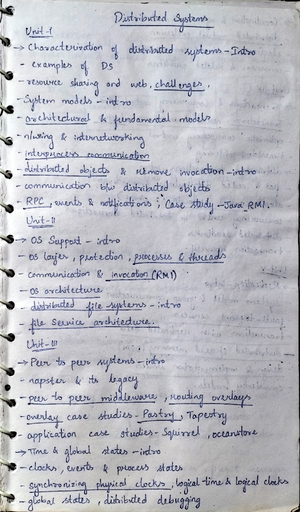 Distributed Systems
Unit-I
→ Characterization of distributed systems - Intro
- examples of DS
- resource sharing and web, challenges.
- System models - intro
- architectural & fundamental models
- n/wing & internetworking
- interprocess communication
- distributed objects & remove invocation - intro
- communication b/w distributed objects
- RPC, events & notifications, Case study - Java RMI.
Unit-II
→ OS Support - intro
- os layer, protection, processes & threads
- communication & invocation (RMI)
- os architecture
- distributed file systems - intro
- file service architecture.
Unit-III
→ Peer to peer systems - intro
- napster & its legacy
- peer to peer, middleware, routing overlays
- overlay case studies - Pastry, Tapestry
- application case studies - Squirrel, oceanstore
→ Time & global states - intro
- clocks, events & process states
- synchronizing physical clocks, logical time & logical clocks
- global states, distributed debugging